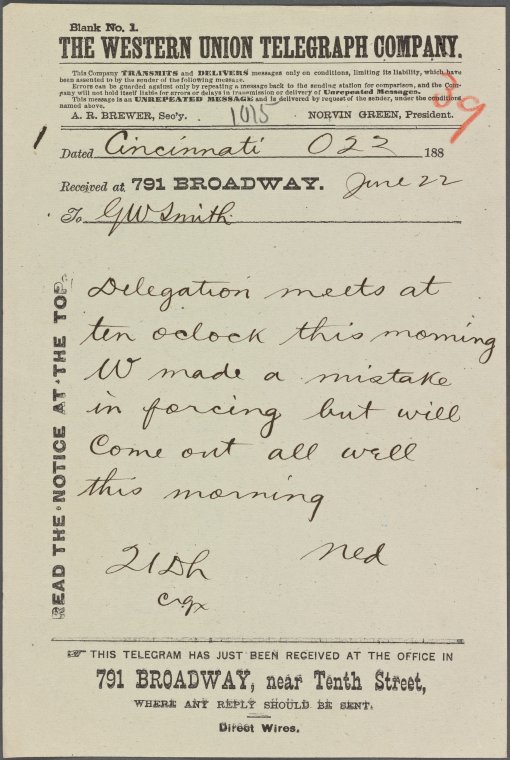 Blank No. 1.
THE WESTERN UNION TELEGRAPH COMPANY.
This Company TRANSMITS and DELIVERS messages only on conditions, limiting its liability, which have
been assented to by the sender of the following message.
Errors can be guarded against only by repeating a message back to the sending station for comparison, and the Com-
pany will not hold itself liable for errors or delays in transmission or delivery of Unrepeated Messages.
This message is an UNREPEATED MESSAGE and is delivered by request of the sender, under the conditions
named above.
39
A. R. BREWER, Sec'y. 1015 NORVIN GREEN, President.
1
Dated Cincinnati O 22 188
Received at 791 BROADWAY. June 22
To GW Smith
READ THE NOTICE AT THE TOP.
Delegation meets at
ten oclock this morning
W made a mistake
in forcing but will
Come out all well
this morning
Ned
21 Dh
☞ THIS TELEGRAM HAS JUST BEEN RECEIVED AT THE OFFICE IN
791 BROADWAY, near Tenth Street,
WHERE ANY REPLY SHOULD BE SENT.
Direct Wires.